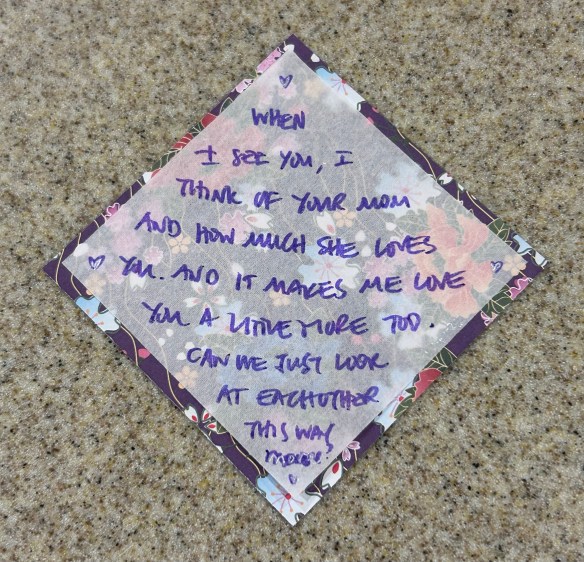 WHEN
I SEE YOU, I
THINK OF YOUR MOM
AND HOW MUCH SHE LOVES
YOU. AND IT MAKES ME LOVE
YOU A LITTLE MORE TOO.
CAN WE JUST LOOK
AT EACHOTHER
THIS WAY
more?